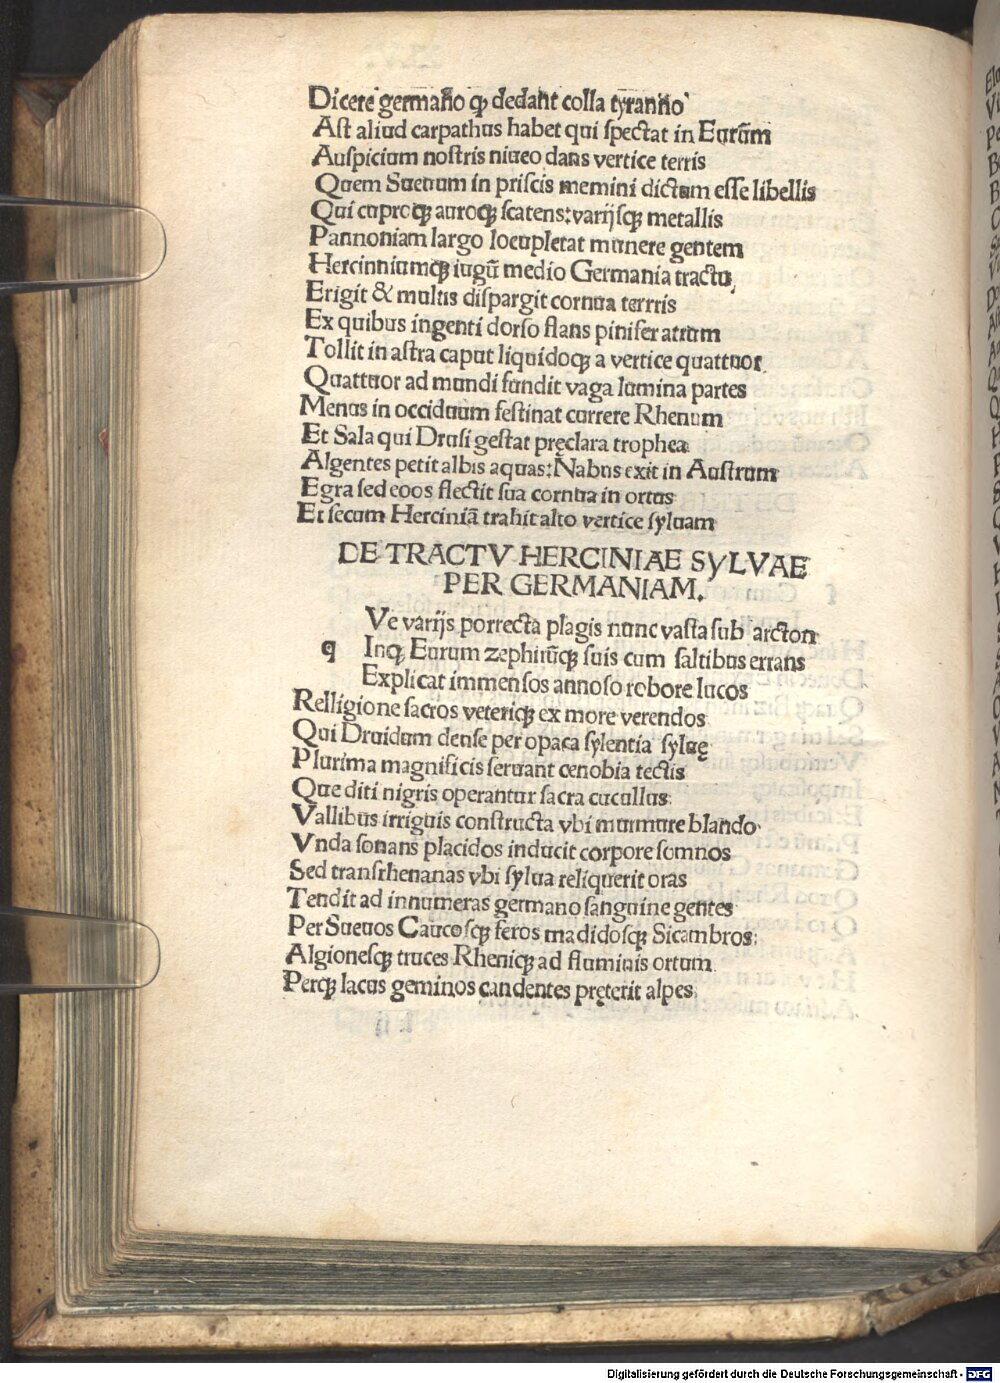 Dicere germaño ꝙ dedant colla tyranno
Ast aliud carpathus habet qui spectat in Eurũm
Auspicium nostris niueo dans vertice terris
Quem Sueuum in priscis memini dictum esse libellis
Qui cuproqꝫ auroqꝫ scatens: varijsqꝫ metallis
Pannoniam largo locupletat munere gentem
Hercinniumqꝫ iugũ medio Germania tractu,
Erigit & multis dispargit cornua terrris
Ex quibus ingenti dorso stans pinifer atrum
Tollit in astra caput liquidoqꝫ a vertice quattuor
Quattuor ad mundi fundit vaga lumina partes
Menus in occiduum festinat currere Rhenum
Et Sala qui Drusi gestat pręclara trophea
Algentes petit albis aquas: Nabus exit in Austrum
Egra sed eoos flectit sua cornua in ortus
Et secum Herciniã trahit alto vertice syluam
DE TRACTV HERCINIAE SyLVAE
PER GERMANIAM.
Ve varijs porrecta plagis nunc vasta sub arcton
q Inqꝫ Eurum zephirũqꝫ suis cum saltibus errans
Explicat immensos annoso robore lucos
Relligione sacros veteriqꝫ ex more verendos
Qui Druidum dense per opaca sylentia syluę
Plurima magnificis seruant cenobia tectis
Que diti nigris operantur sacra cucullus
Vallibus irriguis constructa vbi murmure blando
Vnda sonans placidos inducit corpore somnos
Sed transrhenanas vbi sylua reliquerit oras
Tendit ad innumeras germano sanguine gentes
Per Sueuos Caucosqꝫ feros madidosqꝫ Sicambros:
Algionesqꝫ truces Rheniqꝫ ad fluminis ortum
Perqꝫ lacus geminos candentes pręterit alpes
Digitalisierung gefördert durch die Deutsche Forschungsgemeinschaft - DFG